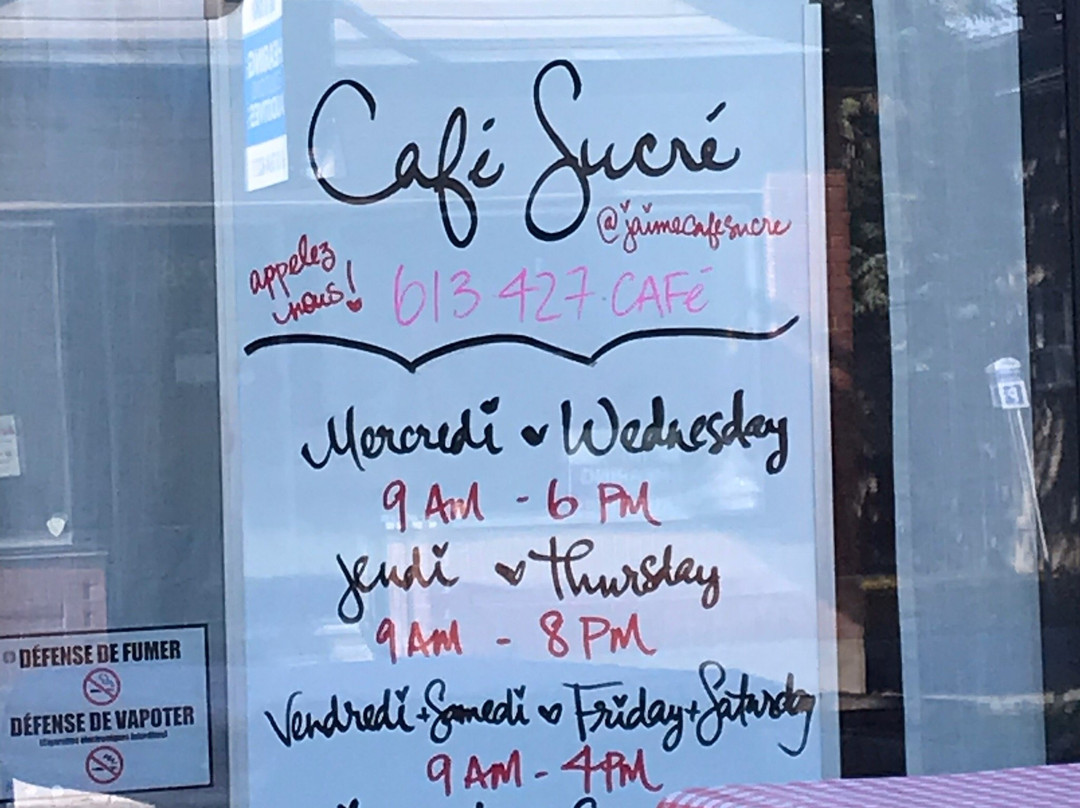 Café Sucré
@jaimecafesucre
appelez
nous!
613·427·CAFé
Mercredi Wednesday
9 AM - 6 PM
Jeudi Thursday
9 AM - 8 PM
Vendredi + Samedi Friday + Saturday
9 AM - 4 PM
DÉFENSE DE FUMER
DÉFENSE DE VAPOTER